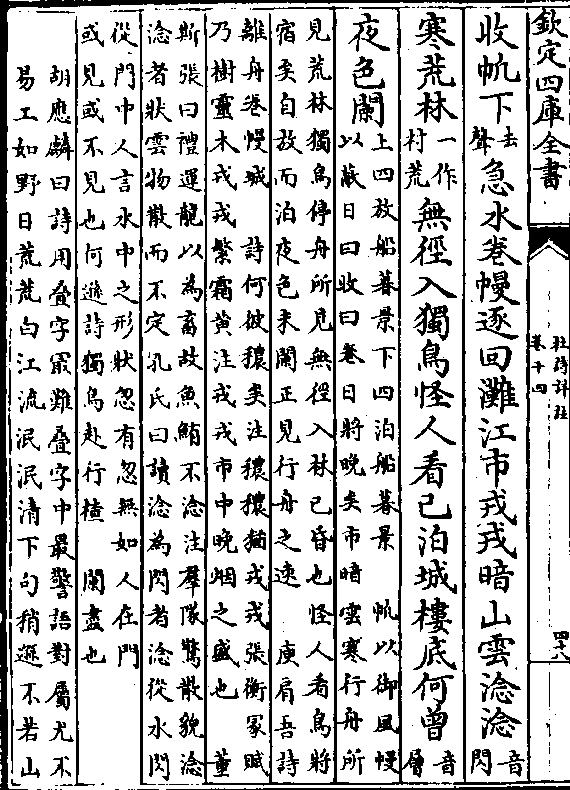 欽定四庫全書
杜詩詳註
卷十四
四十八
收帆下去聲急水卷幔逐回灘江市戎戎暗山雲淰淰音閃
寒荒林一作村荒無徑入獨鳥怪人看已泊城樓底何曾音層
夜色闌
上四放船暮景下四泊船暮景　帆以御風幔
以蔽日曰收曰卷日將晚矣市暗雲寒行舟所
見荒林獨鳥停舟所見無徑入林已昏也怪人看鳥將
宿矣自放而泊夜色未闌正見行舟之速　庾肩吾詩
離舟卷幔城　詩何彼穠矣注穠穠猶戎戎張衡冢賦
乃樹靈木戎戎繁霜黄注戎戎市中晚烟之盛也　董
斯張曰禮運龍以為畜故魚鮪不淰注羣隊驚散貌淰
淰者狀雲物散而不定孔氏曰讀淰為閃者淰從水閃
從門中人言水中之形狀忽有忽無如人在門
或見或不見也何遜詩獨鳥赴行楂　闌盡也
胡應麟曰詩用疊字最難疊字中最警語對屬尤不
易工如野日荒荒白江流泯泯清下句稍遜不若山